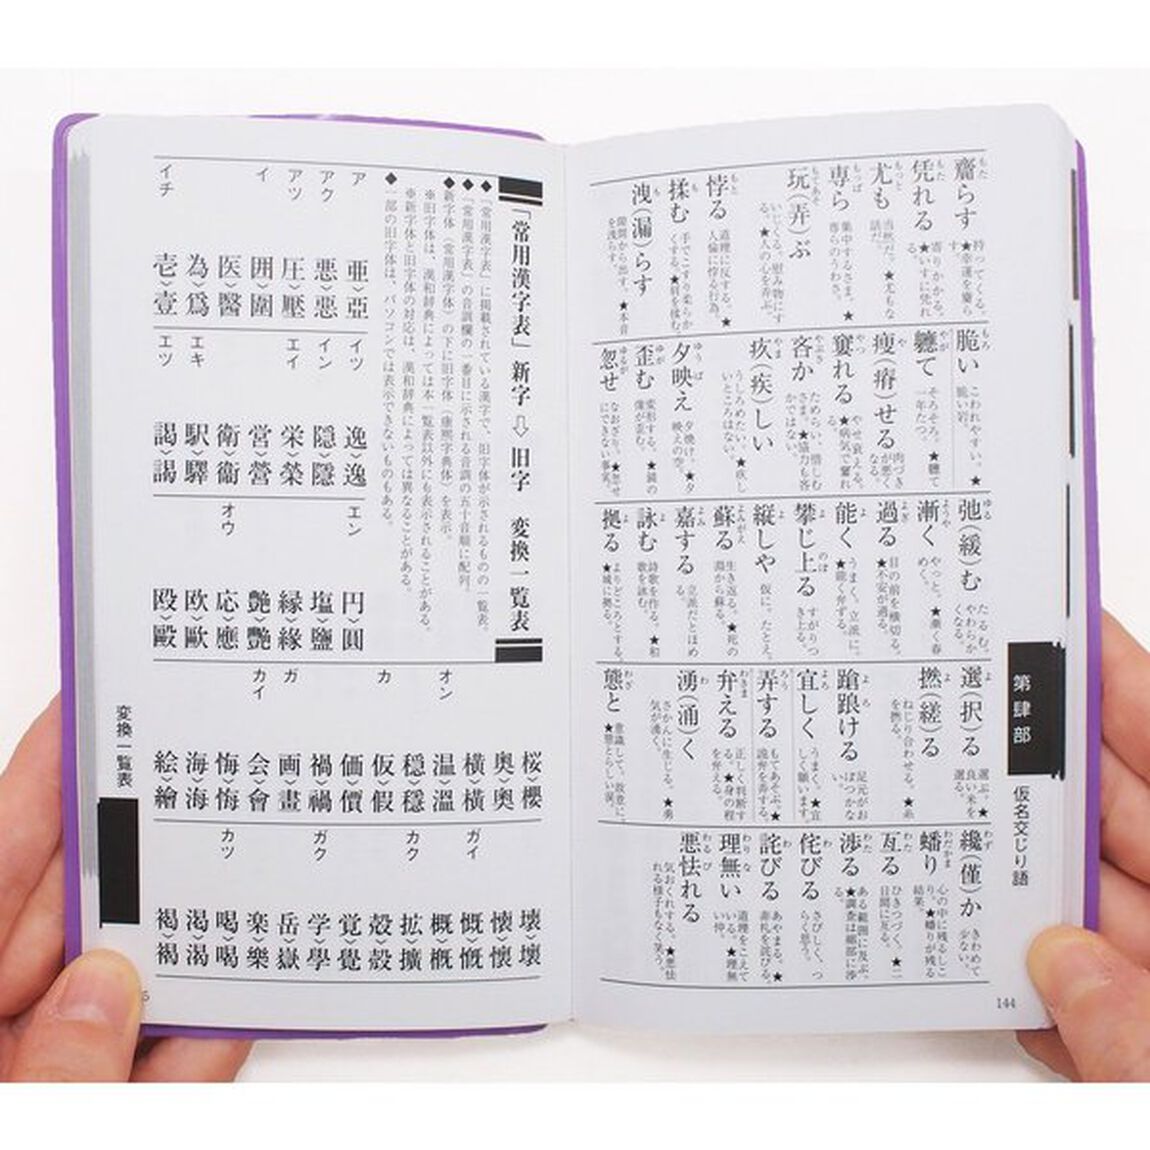 齎らす 持ってくる。★幸運を齎らす。
凭れる 寄りかかる。★いすに凭れる。
尤も 当然だ。★尤もな話だ。
専ら 集中するさま。★専らのうわさ。
玩(弄)ぶ いじくる。慰み物にする。★人の心を弄ぶ。
悖る 道理に反する。★人倫に悖る行為。
揉む 手でこすり柔らかくする。★肩を揉む。
洩(漏)らす 隙間から出す。★本音を洩らす。
脆い こわれやすい。★脆い岩。
軈て そろそろ。★軈て一年たつ。
瘦(瘠)せる 肉づきが悪くなる。
窶れる やせ衰える。★病気で窶れる。
吝か ためらい、惜しむさま。★協力も吝かではない。
疚(疾)しい うしろめたい。★疚しいところはない。
夕映え 夕焼け。★夕映えの空。
歪む 変形する。★鏡の像が歪む。
忽せ なおざり。★忽せにできない事実。
弛(緩)む たるむ。やわらかくなる。
漸く やっと。★漸く春めく。
過る 目の前を横切る。★不安が過る。
能く うまく。立派に。★能く弁ずる。
攀じ上る すがりつき上る。
縦しや 仮に。たとえ。
蘇る 生き返る。★死の淵から蘇る。
嘉する 立派だとほめる。
詠む 詩歌を作る。★和歌を詠む。
拠る よりどころとする。★城に拠る。
選(択)る 選ぶ。★良い米を選る。
撚(縒)る ねじり合わせる。★糸を撚る。
蹌踉ける 足元がおぼつかない。
宜しく うまく。★宜しく願います。
弄する もてあそぶ。★詭弁を弄する。
弁える 正しく判断する。★身の程を弁える。
湧(涌)く さかんに生じる。★勇気が湧く。
態と 意識して。故意に。★態とらしい涙。
纔(僅)か きわめて少ない。
蟠り 心の中に残るしこり。★蟠りが残る結果。
亙る ひきつづく。★二日間に亙る。
渉る ある範囲に及ぶ。★調査は細部に渉る。
侘びる さびしく、つらく思う。
詫びる あやまる。★非礼を詫びる。
理無い 道理をこえている。★理無い仲。
悪怯れる 気おくれする。★悪怯れる様子もなく笑う。
第肆部
仮名交じり語
144
「常用漢字表」新字⇨旧字 変換一覧表
◆「常用漢字表」に掲載されている漢字で、旧字体が示されるものの一覧表。
◆「常用漢字表」の音訓欄の一番目に示される音訓の五十音順に配列。
◆新字体(常用漢字体)の下に旧字体(康熙字典体)を表示。
※旧字体は、漢和辞典によっては本一覧表以外にも表示されることがある。
※新字体と旧字体の対応は、漢和辞典によっては異なることがある。
◆一部の旧字体は、パソコンでは表示できないものもある。
ア 亜›亞
アク 悪›惡
アツ 圧›壓
イ 囲›圍
医›醫
為›爲
イチ 壱›壹
イツ 逸›逸
イン 隠›隱
エイ 栄›榮
営›營
衛›衞
エキ 駅›驛
エツ 謁›謁
エン 円›圓
塩›鹽
縁›緣
艶›艷
オウ 応›應
欧›歐
殴›毆
桜›櫻
奥›奧
横›橫
オン 温›溫
穏›穩
カ 仮›假
価›價
禍›禍
ガ 画›畫
カイ 会›會
悔›悔
海›海
絵›繪
壊›壞
懐›懷
ガイ 慨›慨
概›概
カク 拡›擴
殻›殼
覚›覺
ガク 学›學
岳›嶽
楽›樂
カツ 喝›喝
渇›渴
褐›褐
変換一覧表